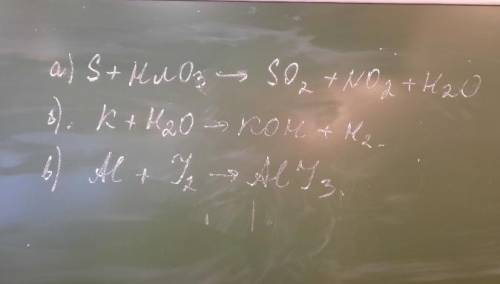 а) S + HNO3 → SO2 + NO2 + H2O
б). K + H2O → KOH + H2.
в) Al + J2 → AlJ3.